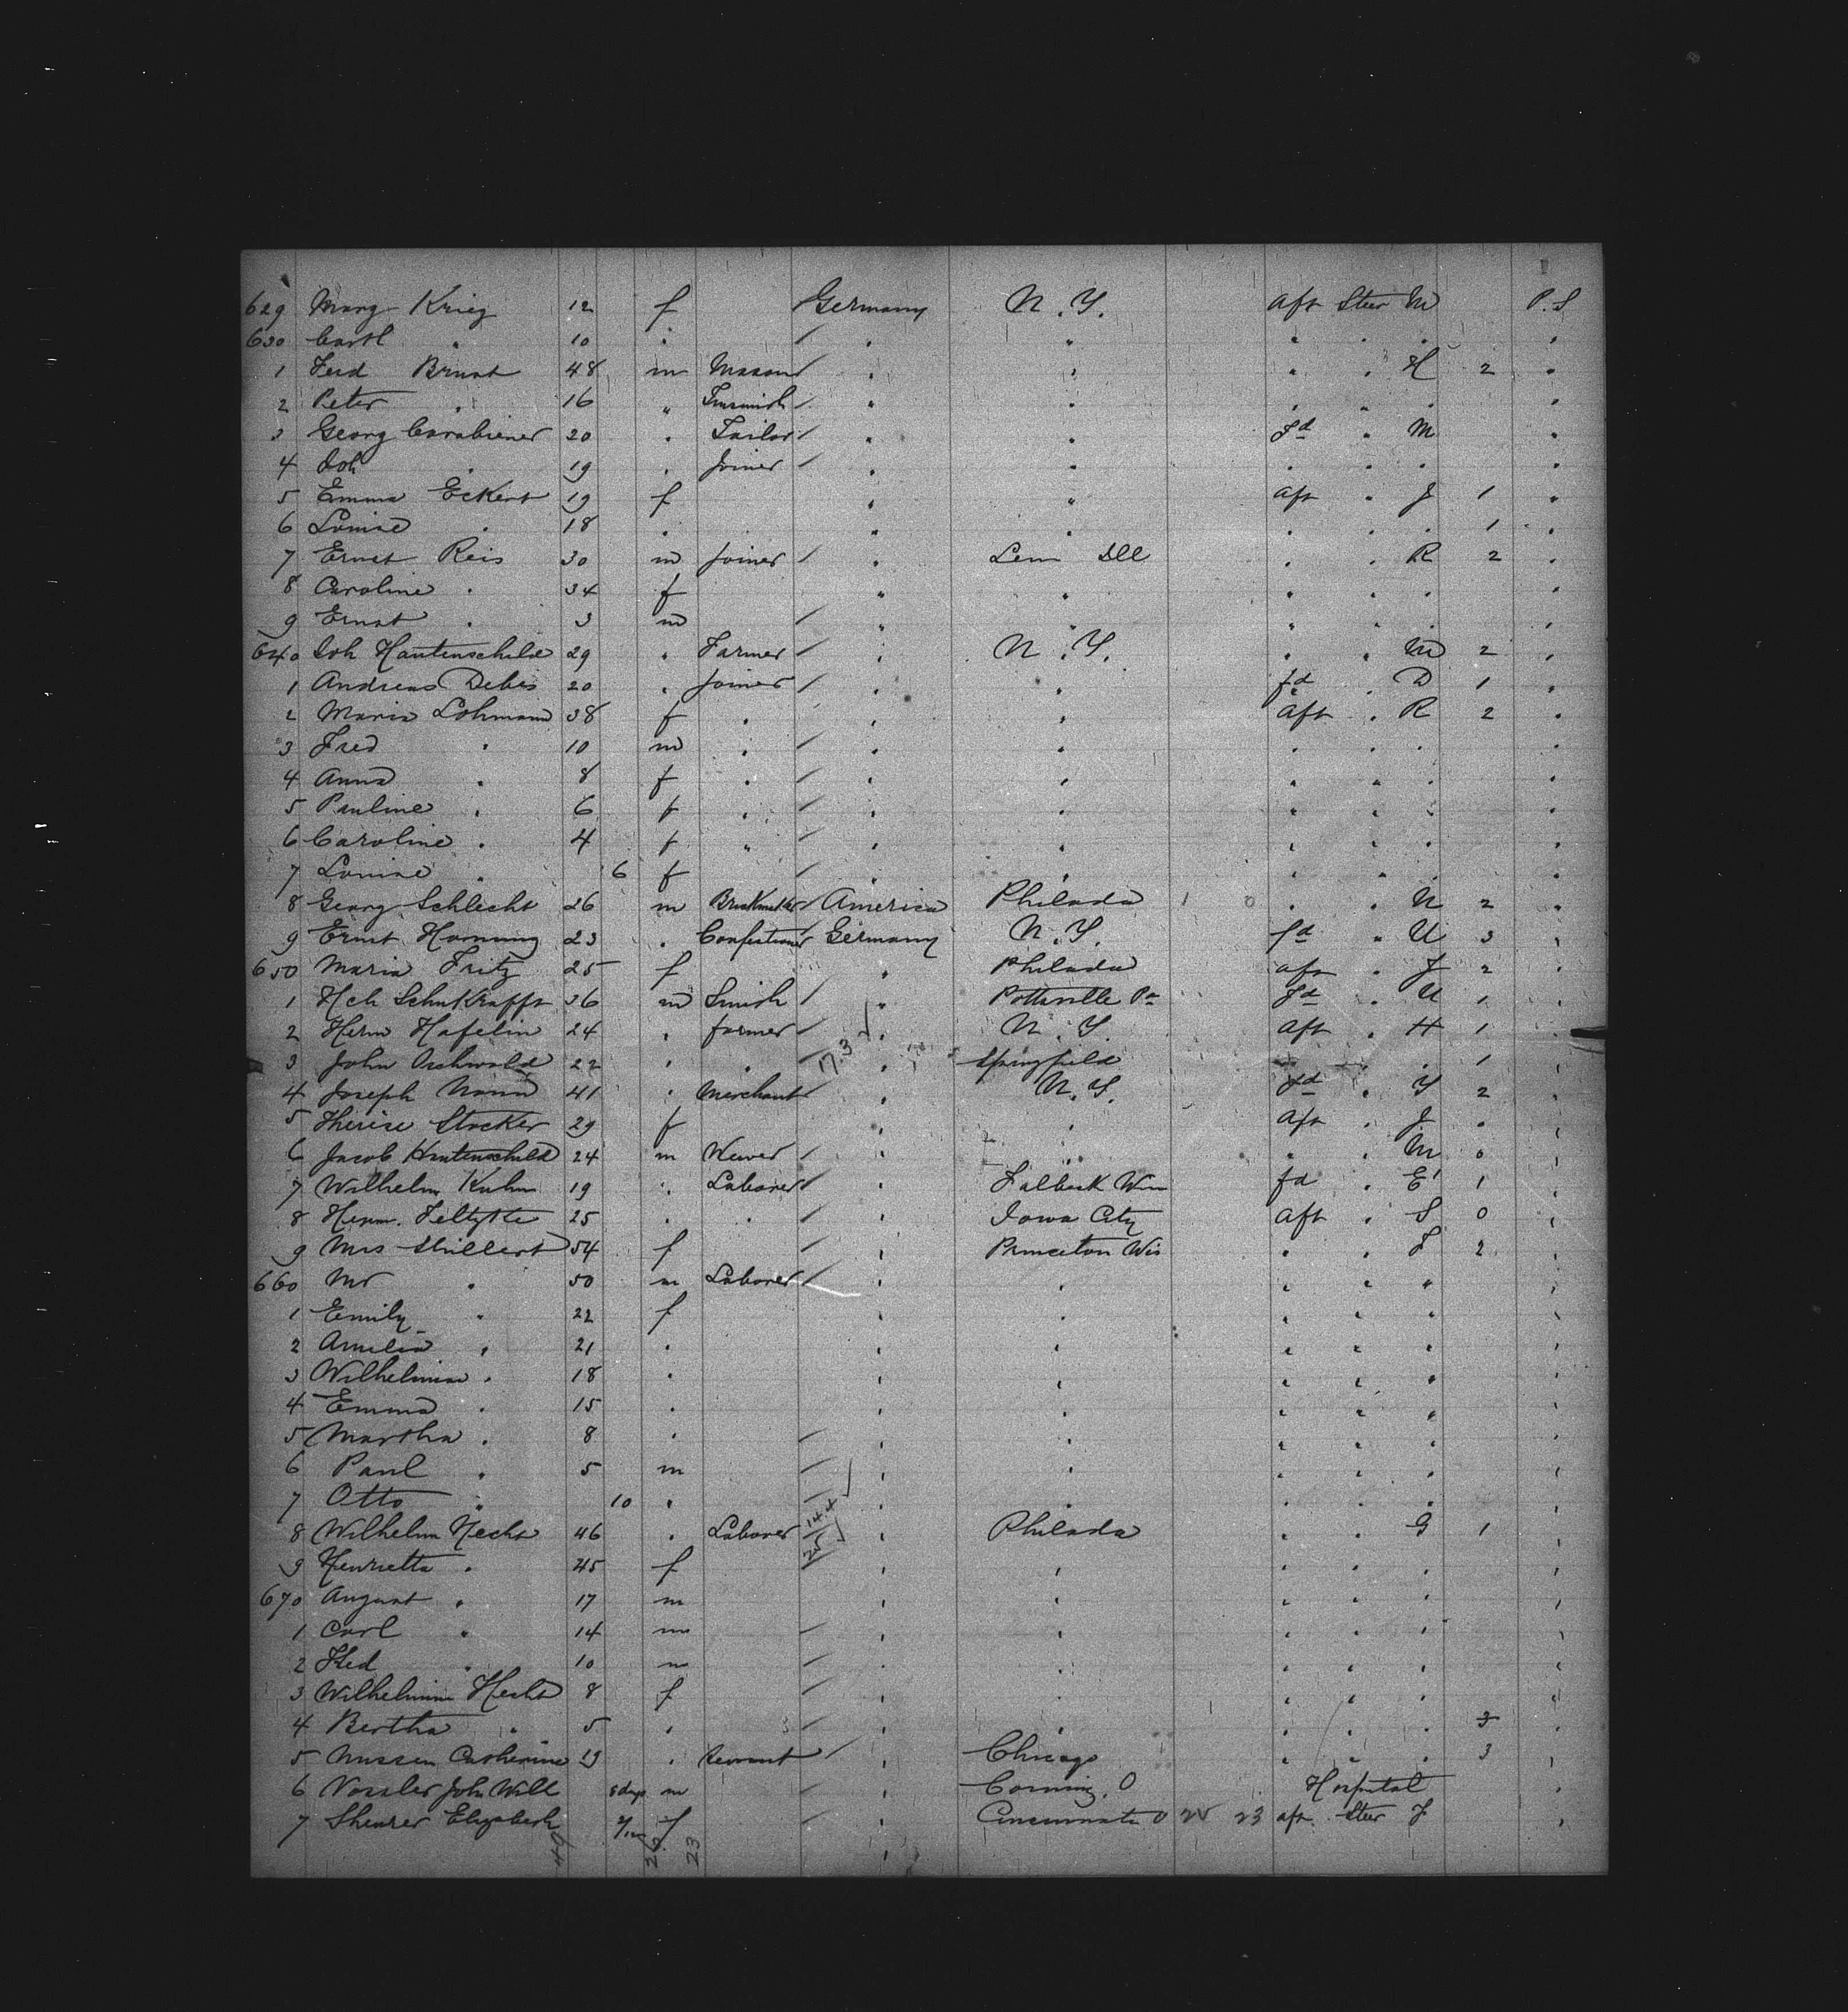 629 Marg Krieg 12 f Germany N.Y. Aft Steer M P.S
630 Carl " 10 " " " " " " "
1 Ferd Brunt 48 m Mason " " " " H 2 "
2 Peter " 16 " " " " " " "
3 Georg 20 " Tailor " " Fd " M "
4 Joh " 19 " Joiner " " " " " "
5 Emma Eckert 19 f " " Aft " J 1 "
6 Louise " 18 " " " " " " 1 "
7 Ernst Reis 30 m Joiner " " " R 2 "
8 Caroline " 34 f " " " " " "
9 Ernst " 3 m " " " " " "
640 Joh Hautenschild 29 " Farmer " N.Y. " " M 2 "
1 Andreas Debes 20 " Joiner " " fd " D 1 "
2 Maria Lohmann 38 f " " " Aft " R 2 "
3 Fred " 10 m " " " " " " "
4 Anna " 8 f " " " " " " "
5 Pauline " 6 f " " " " " " "
6 Caroline " 4 f " " " " " " "
7 Louise " 6 f " " " " " "
8 Georg Schlecht 26 m America Philada 1 0 " " N 2 "
9 Ernst Hornung 23 " Confectioner Germany N.Y. fd " U 3 "
650 Maria Fritz 25 f " Philada aft " J 2 "
1 Hch Schukrafft 36 m Smith " Pottsville Pa Fd " U 1 "
2 Herm Hafelin 24 " Farmer " N.Y. Aft " H 1 "
3 John Oschwald 22 " " " Springfield " " 1 "
4 Joseph 41 " Merchant " N.Y. Fd " Y 2 "
5 Therese Stocker 29 f " " Aft " J " "
6 Jacob Hautenschild 24 m Wever " " " " M 0 "
7 Wilhelm Kuhn 19 " Laborer " fd " E 1 "
8 Herm. 25 " " " Iowa City Aft " S 0 "
9 Mrs 54 f " Princeton Wis " " F 2 "
660 Mr " 50 m Laborer " " " " " "
1 Emily " 22 f " " " " " "
2 Amelia " 21 " " " " " " "
3 Wilhelmine " 18 " " " " " " "
4 Emma " 15 " " " " " " "
5 Martha " 8 " " " " " " "
6 Paul " 5 m " " " " " "
7 Otto " 10 " " " " " " "
8 Wilhelm Hecht 46 " Laborer " Philada " " G 1 "
9 Henrietta " 45 f " " " " " "
670 August " 17 m " " " " " "
1 Carl " 14 m " " " " " "
2 Fred " 10 m " " " " " "
3 Wilhelmine Hecht 8 f " " " " " "
4 Bertha " 5 " " " " " " 3 "
5 Nussen Catherine 19 " Servant " Chicago " " " 3 "
6 Vossler John Will 8 days m " Corning, O Hospital "
7 Sheurer Elizabeth f " Cincinnati O 25 23 aft Steer F "
23